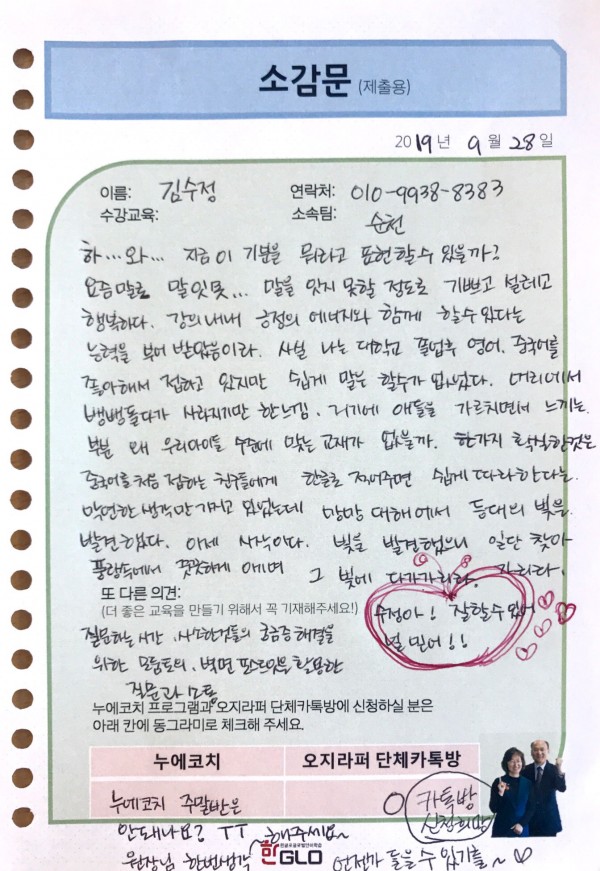 소감문 (제출용)
2019년 9월 28일
이름: 김수정 연락처: 010-9938-8383
수강교육: 소속팀: 순천
하… 와… 지금 이 기분을 뭐라고 표현할 수 있을까?
요즘말로 말잇못… 말을 잇지 못할 정도로 기쁘고 설레고
행복하다. 강의내내 긍정의 에너지와 함께 할수있다는
능력을 부어 받았음이라. 사실 나는 대학교 졸업후 영어, 중국어를
좋아해서 접하고 있지만 쉽게 말은 할수가 없었다. 머리에서
뱅뱅돌다가 사라지기만 한느낌. 거기에 애들을 가르치면서 느끼는
부분 왜 우리아이들 수준에 맞는 교재가 없을까. 한가지 확실한것은
중국어를 처음 접하는 친구들에게 한글로 찍어주면 쉽게 따라한다는
막연한 생각만 가지고 있었는데 망망 대해에서 등대의 빛을
발견했다. 이제 시작이다. 빛을 발견했으니 일단 찾아
풍랑속에서 꿋꿋하게 헤쳐 그 빛에 다가가리라. 가리라.
또 다른 의견:
(더 좋은 교육을 만들기 위해서 꼭 기재해주세요!)
수정아! 잘할수있어
널 믿어!!
질문하는 시간, 사소한것들의 궁금증 해결을
위한 모둠토의, 벽면 포스트잇을 활용한
질문과 소통
누에코치 프로그램과 오지라퍼 단체카톡방에 신청하실 분은
아래 칸에 동그라미로 체크해 주세요.
누에코치 오지라퍼 단체카톡방
누에코치 주말반은 O 카톡방
안돼나요? TT 해주세요~ 신청희망
원장님 한번생각 한GLO 언젠가 들을 수 있기를~ ♡